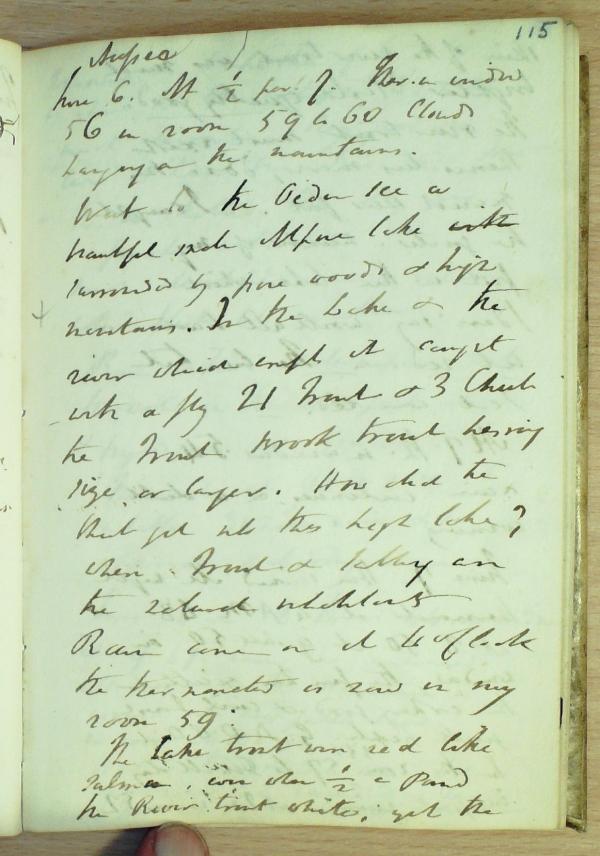 115
Aussee
June 6. At ½ past 7. Ther. in window
56 in room 59 to 60 Clouds
hanging on the mountains.
Went to the Oeden See a
beautiful small Alpine lake with
surrounded by pine woods & high
mountains. In the Lake & the
river which empts it caught
with a fly 21 Trout & 3 Chub
the Trout brook trout herring
size or larger. How did the
Chub get into this high lake?
when Trout & are
the natural inhabitants
Rain came on at 4 o'clock
the thermometer is now in my
room 59.
The Lake trout were red like
Salmon, even when ½ a Pound
the River trout white, yet the